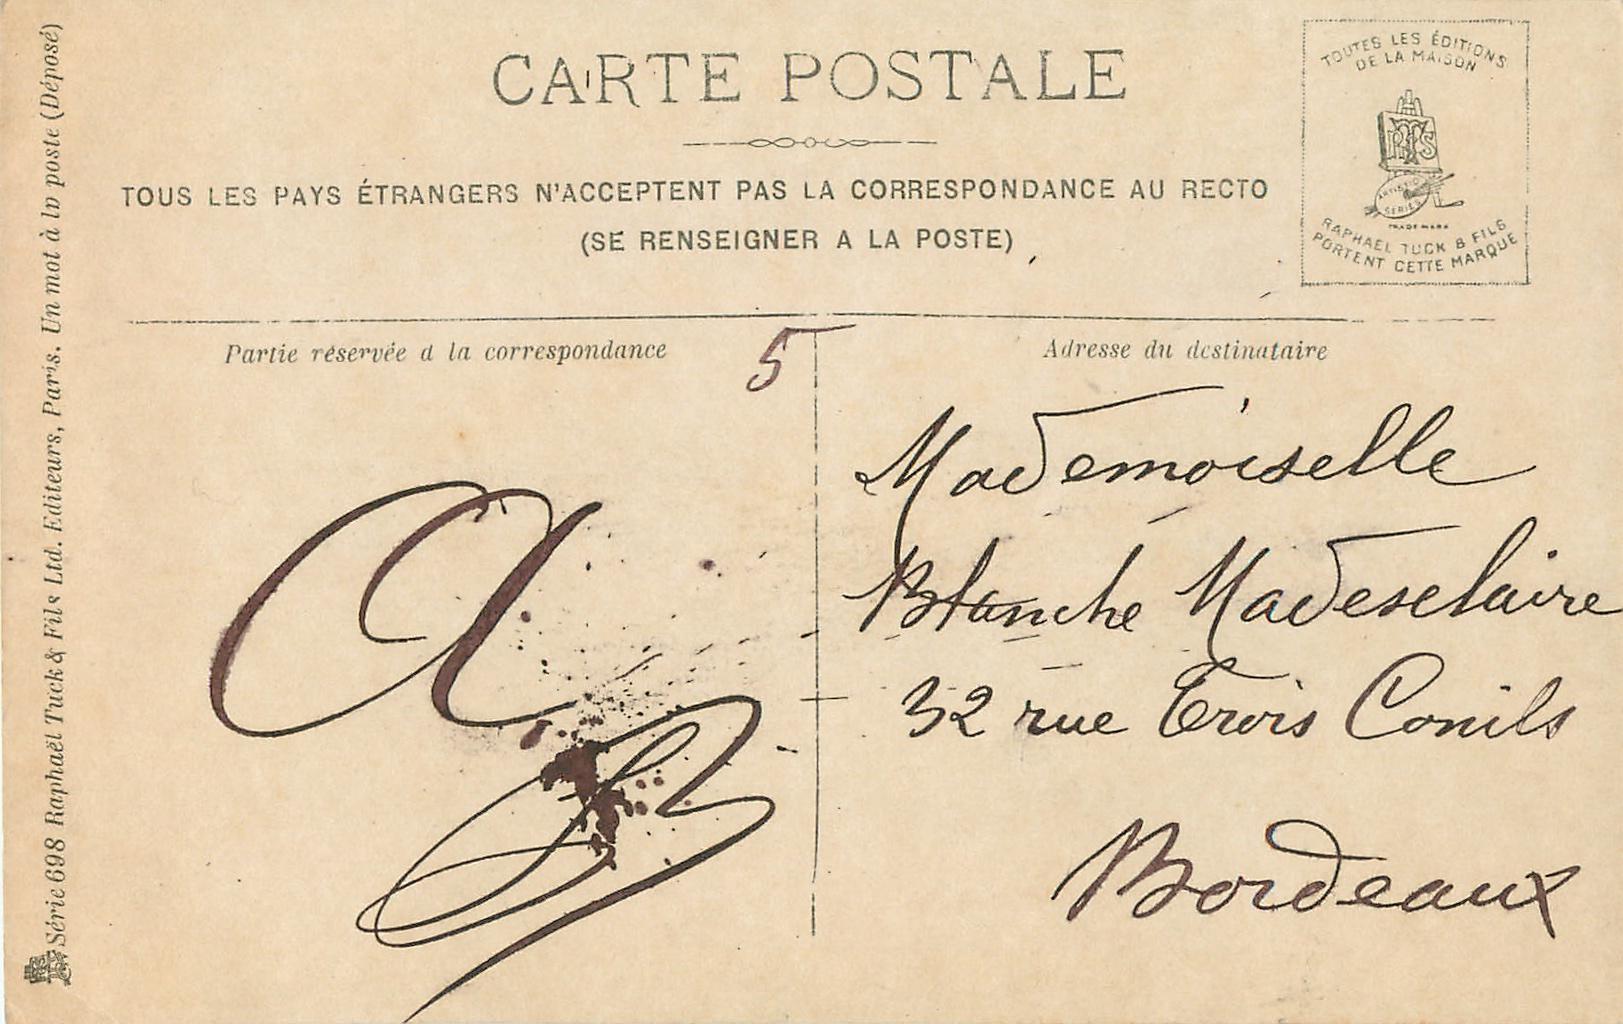 CARTE POSTALE
TOUS LES PAYS ÉTRANGERS N'ACCEPTENT PAS LA CORRESPONDANCE AU RECTO
(SE RENSEIGNER A LA POSTE)
TOUTES LES ÉDITIONS
DE LA MAISON
RTS
ARTISTIC
SERIES
TRADE MARK
RAPHAEL TUCK & FILS
PORTENT CETTE MARQUE
Partie réservée à la correspondance
5
Adresse du destinataire
Mademoiselle
Blanche Madesclaire
32 rue Trois Conils
Bordeaux
Série 698 Raphaël Tuck & Fils Ltd. Editeurs, Paris. Un mot à la poste (Déposé)